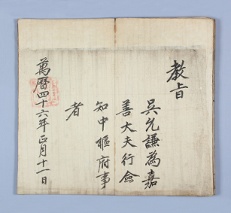 敎旨
吳允謙為嘉
善大夫行僉
知中樞府事
者
萬曆四十六年正月十一日